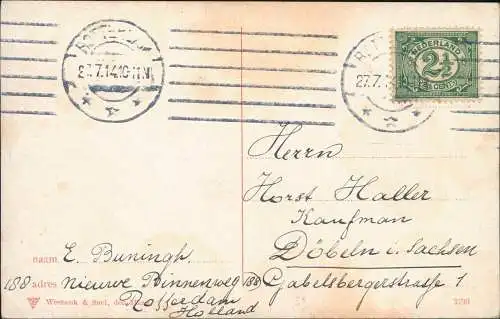 27.7.14.10-11N
27.7.1
NEDERLAND
2½
CENT
Herrn
Horst Haller
Kaufman
Döbeln i. Sachsen
Gabelsbergerstrasse 1
naam E. Buningh.
188 adres Nieuwe Binnenweg 188
Rotterdam
Holland
Weenenk & Snel, den